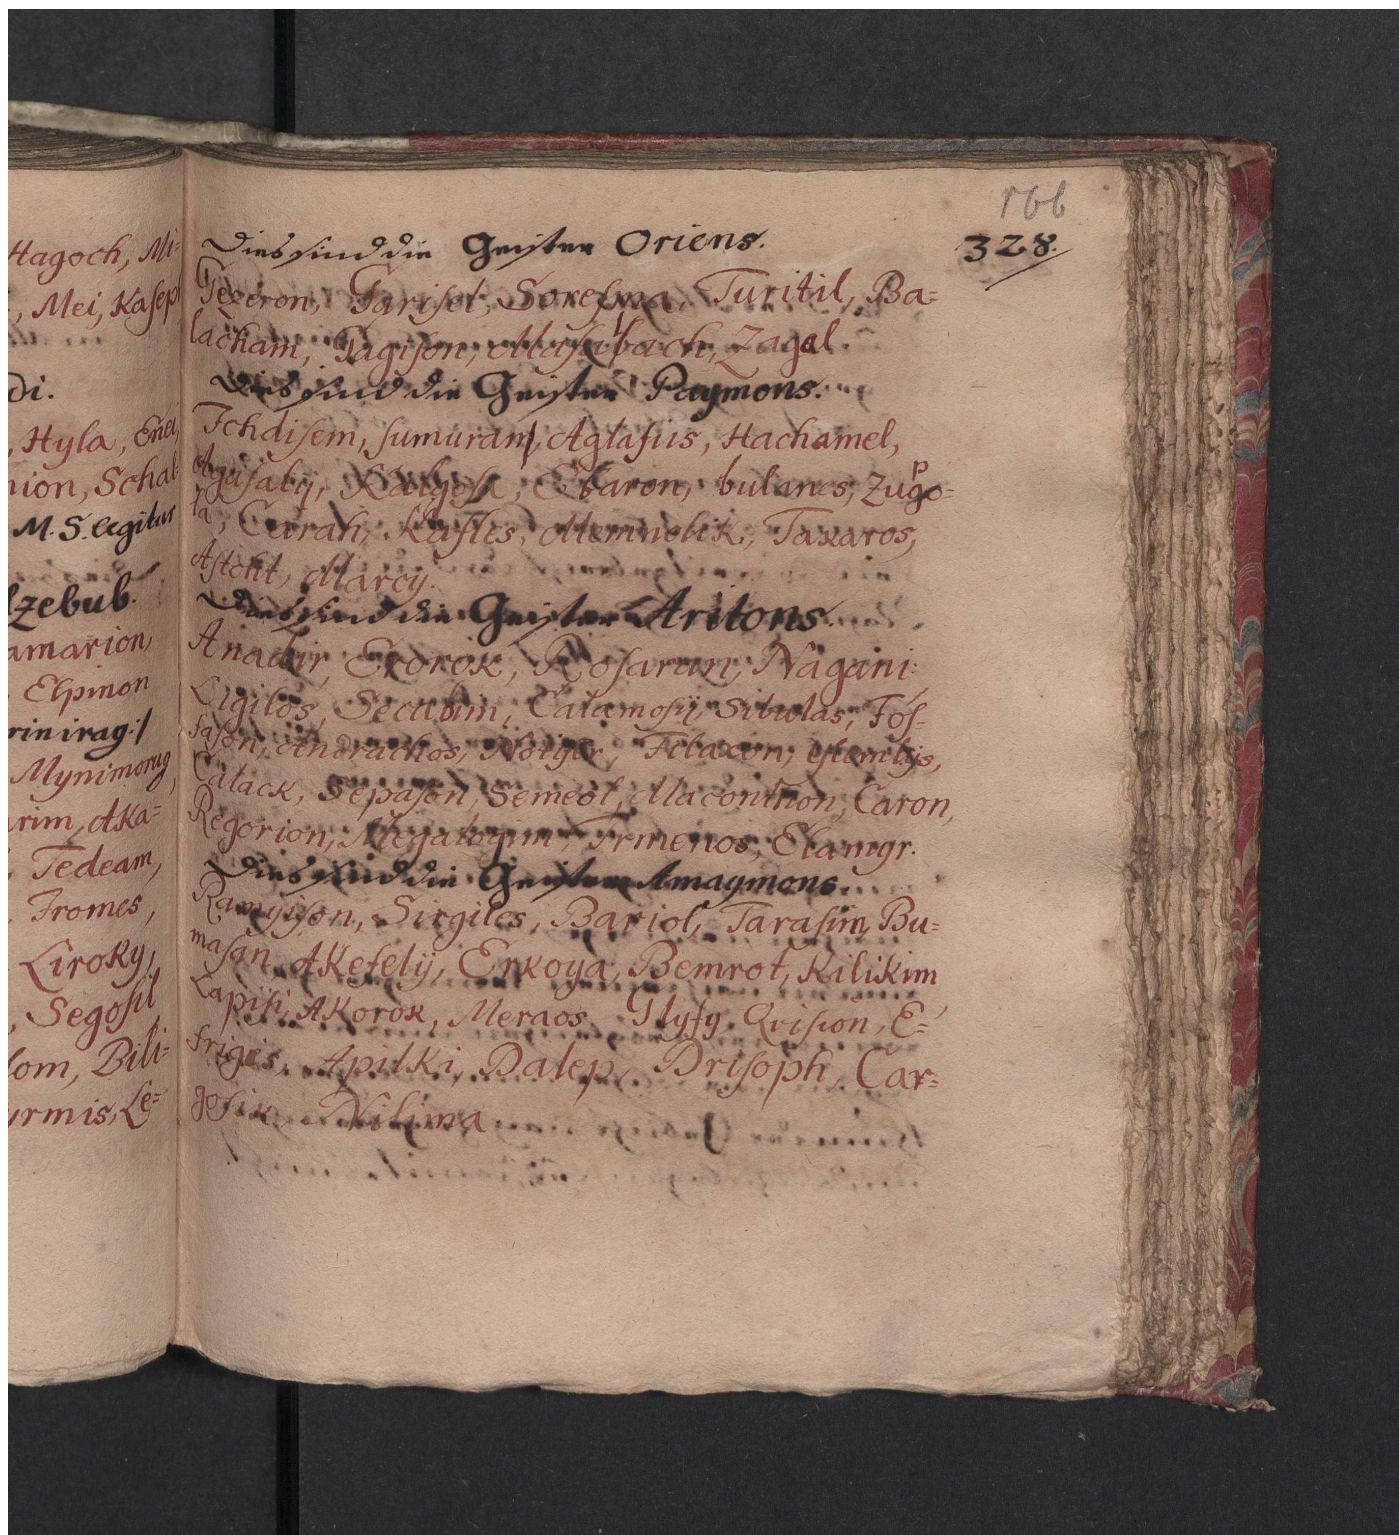 Hagoch, Mi-
, Mei, Kasep
di.
, Hyla, Enei,
nion, Schal-
M. S. legitur
lzebub.
amarion,
Elpinon
rinirag:/
Mynimorug,
arim, Aka=
Tedeam,
Iromes,
Liroky,
, Segosil
lom, Bili=
yrmis, Le=
166
328.
Dies sind die Geister Oriens.
Gezeron, Sarisel, Soresma, Turitil, Ba=
lacham, Gagison, Mafalach, Zagal.
Dies sind die Geister Paymons.
Ichdisem, sumuram, Aglasus, Hachamel,
Agisalij, Ebaron, bulanes, Zugo=
la, Carah, Kafles, Memnolik, Taxaros,
Astcht, Marcy.
Dies sind die Geister Aritons.
Anadir, Ecorok, Rosaran, Nagani:
Ligilos, Secabim, Calamosij, Sibolas, Fos-
fason, Andrachos, Notger, Filaxon,
Catack, Sepason, Semeol, Maconthon, Caron,
Regorion, Megalogim, Irmenos, Elamgr.
Dies sind die Geister Amaymons.
Ramysson, Sirgiles, Bariol, Tarasim, Bu=
masan, Akefelij, Erkoya, Bemrot, Kilikim
Lapisi, Akorok, Meraos, Glysy, Qvision, E=
frigis, Apilki, Dalep, Drisoph, Car=
gosik, Nilima